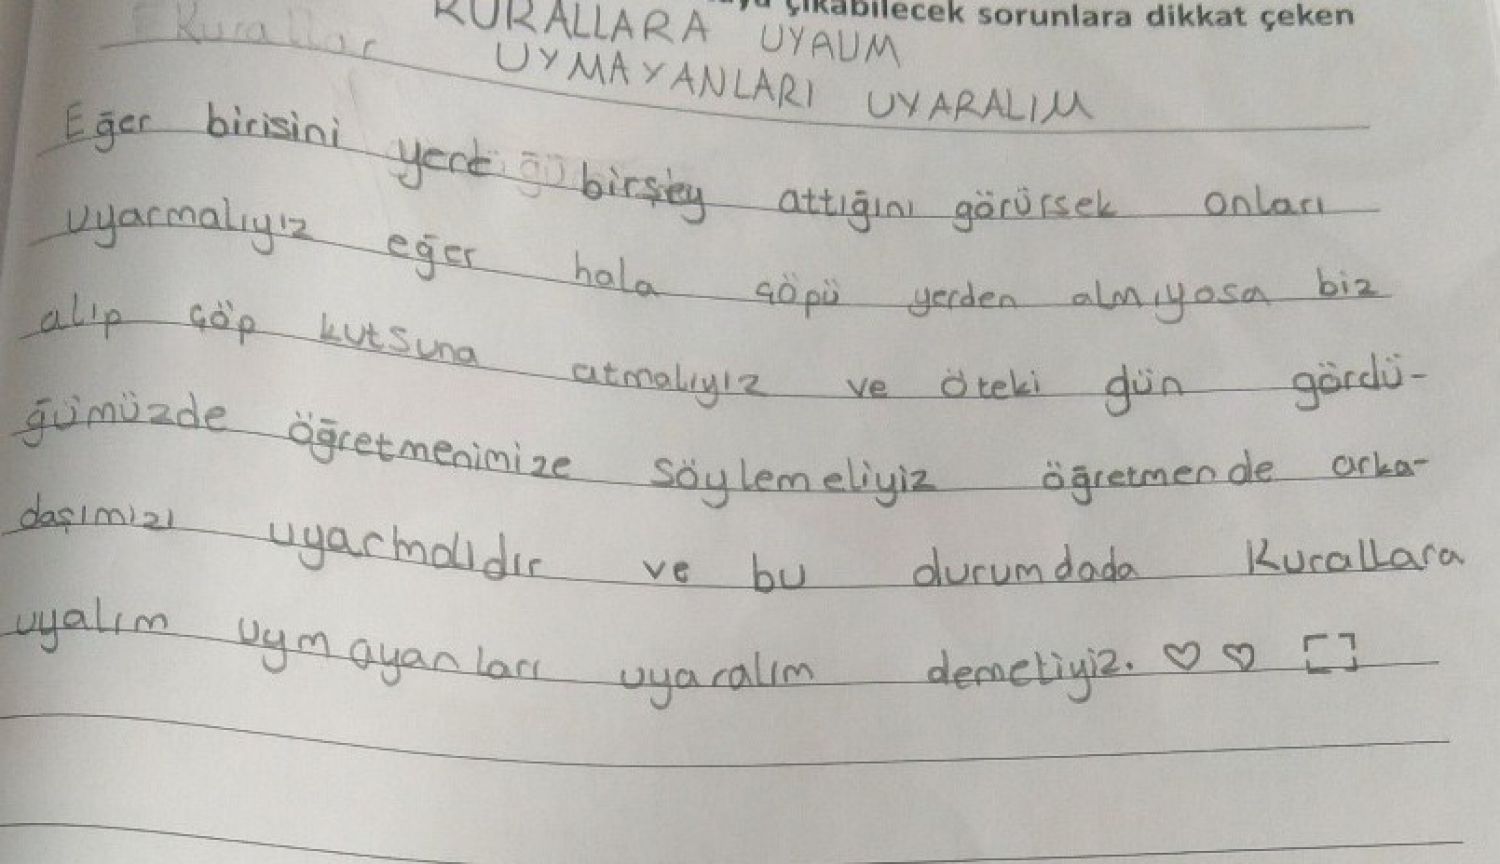 çıkabilecek sorunlara dikkat çeken
Kurallar
KURALLARA UYALIM
UYMAYANLARI UYARALIM
Eğer birisini yere birşey attığını görürsek onları
uyarmalıyız eğer hala çöpü yerden almıyosa biz
alıp çöp kutsuna atmalıyız ve öteki gün gördü-
ğümüzde öğretmenimize söylemeliyiz öğretmende arka-
daşımızı uyarmalıdır ve bu durumdada Kurallara
uyalım uymayanları uyaralım demeliyiz. ♡ ♡